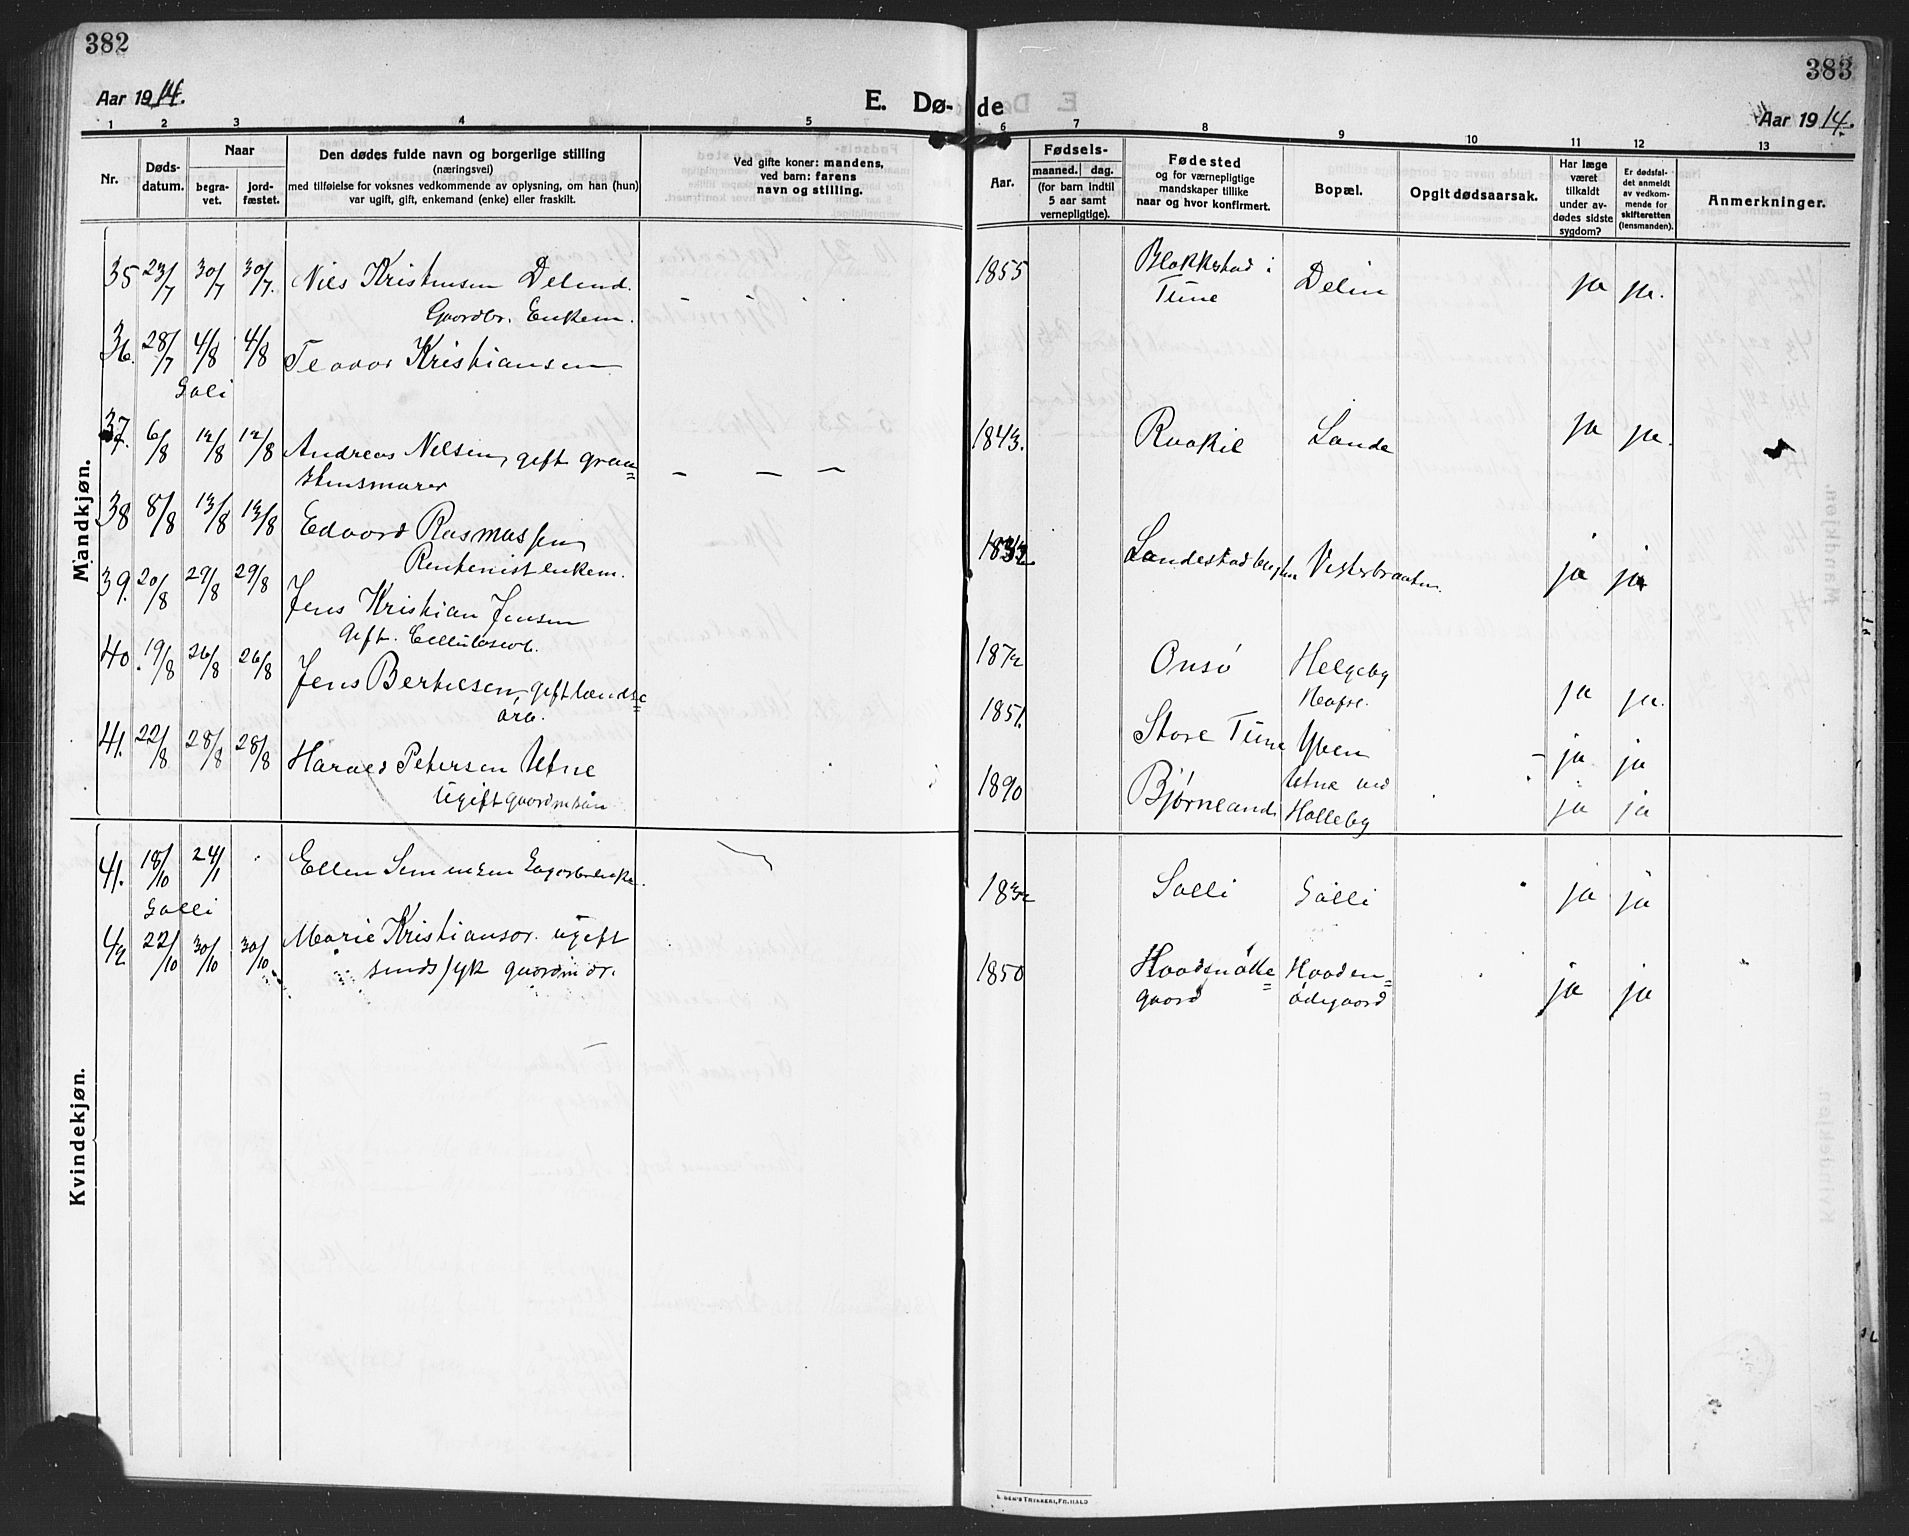 382
Aar 1914.
E. Dø-
1 2 3 4 5
Nr.
Døds-
datum.
Naar
begra-
vet.
jord-
fæstet.
Den dødes fulde navn og borgerlige stilling
(næringsvei)
med tilføielse for voksnes vedkommende av oplysning, om han (hun)
var ugift, gift, enkemand (enke) eller fraskilt.
Ved gifte koner: mandens,
ved barn: farens
navn og stilling.
Mandkjøn.
35 23/7 30/7 30/7. Nils Kristensen Delend.
Gaardbr. Enkem.
36. 28/7 4/8 4/8 Teodor Kristiansen
Soli
37. 6/8 12/8 12/8 Andreas Nilsen, gift
stensmurer
38 8/8 13/8 13/8 Edvard Rasmussen
Rentenist enkem.
39. 20/8 29/8 29/8 Jens Kristian Jensen
Gift. Cellulosearb.
40. 19/8 26/8 26/8 Jens Bertelsen, gift lands=
arb.
41. 22/8 28/8 28/8 Harald Petersen Utne
Ugift gaardm.søn
Kvindekjøn.
41. 18/10 24/1 Ellen Simensen
Solli
42 22/10 30/10 30/10 Marie Kristiansdr. ugift
sindssyk gaardm.dr.
383
Aar 1914.
de
6 7 8 9 10 11 12 13
Aar.
Fødsels-
maaned. dag.
(for barn indtil
5 aar samt
vernepligtige).
Fødested
og for værnepligtige
mandskaper tillike
naar og hvor konfirmert.
Bopæl.
Opgit dødsaarsak.
Har læge
været
tilkaldt
under av-
dødes sidste
sygdom?
Er dødsfal-
det anmeldt
av vedkom-
mende for
skifteretten
(lensmanden).
Anmerkninger.
1855 Blakkestad i
Tune Delin ja ja.
1843. Raakil Lande ja ja.
Landestadbugten Vesterbraaten. ja ja
1872 Onsø Helgeby
Hafsl. ja ja.
1851. Store Tune Yven ja ja
1890 Bjørneland Utne ved
Halleby ja ja
1832 Solli Solli ja ja
1850 Haadenøde=
gaard Haaden=
ødegaard ja ja